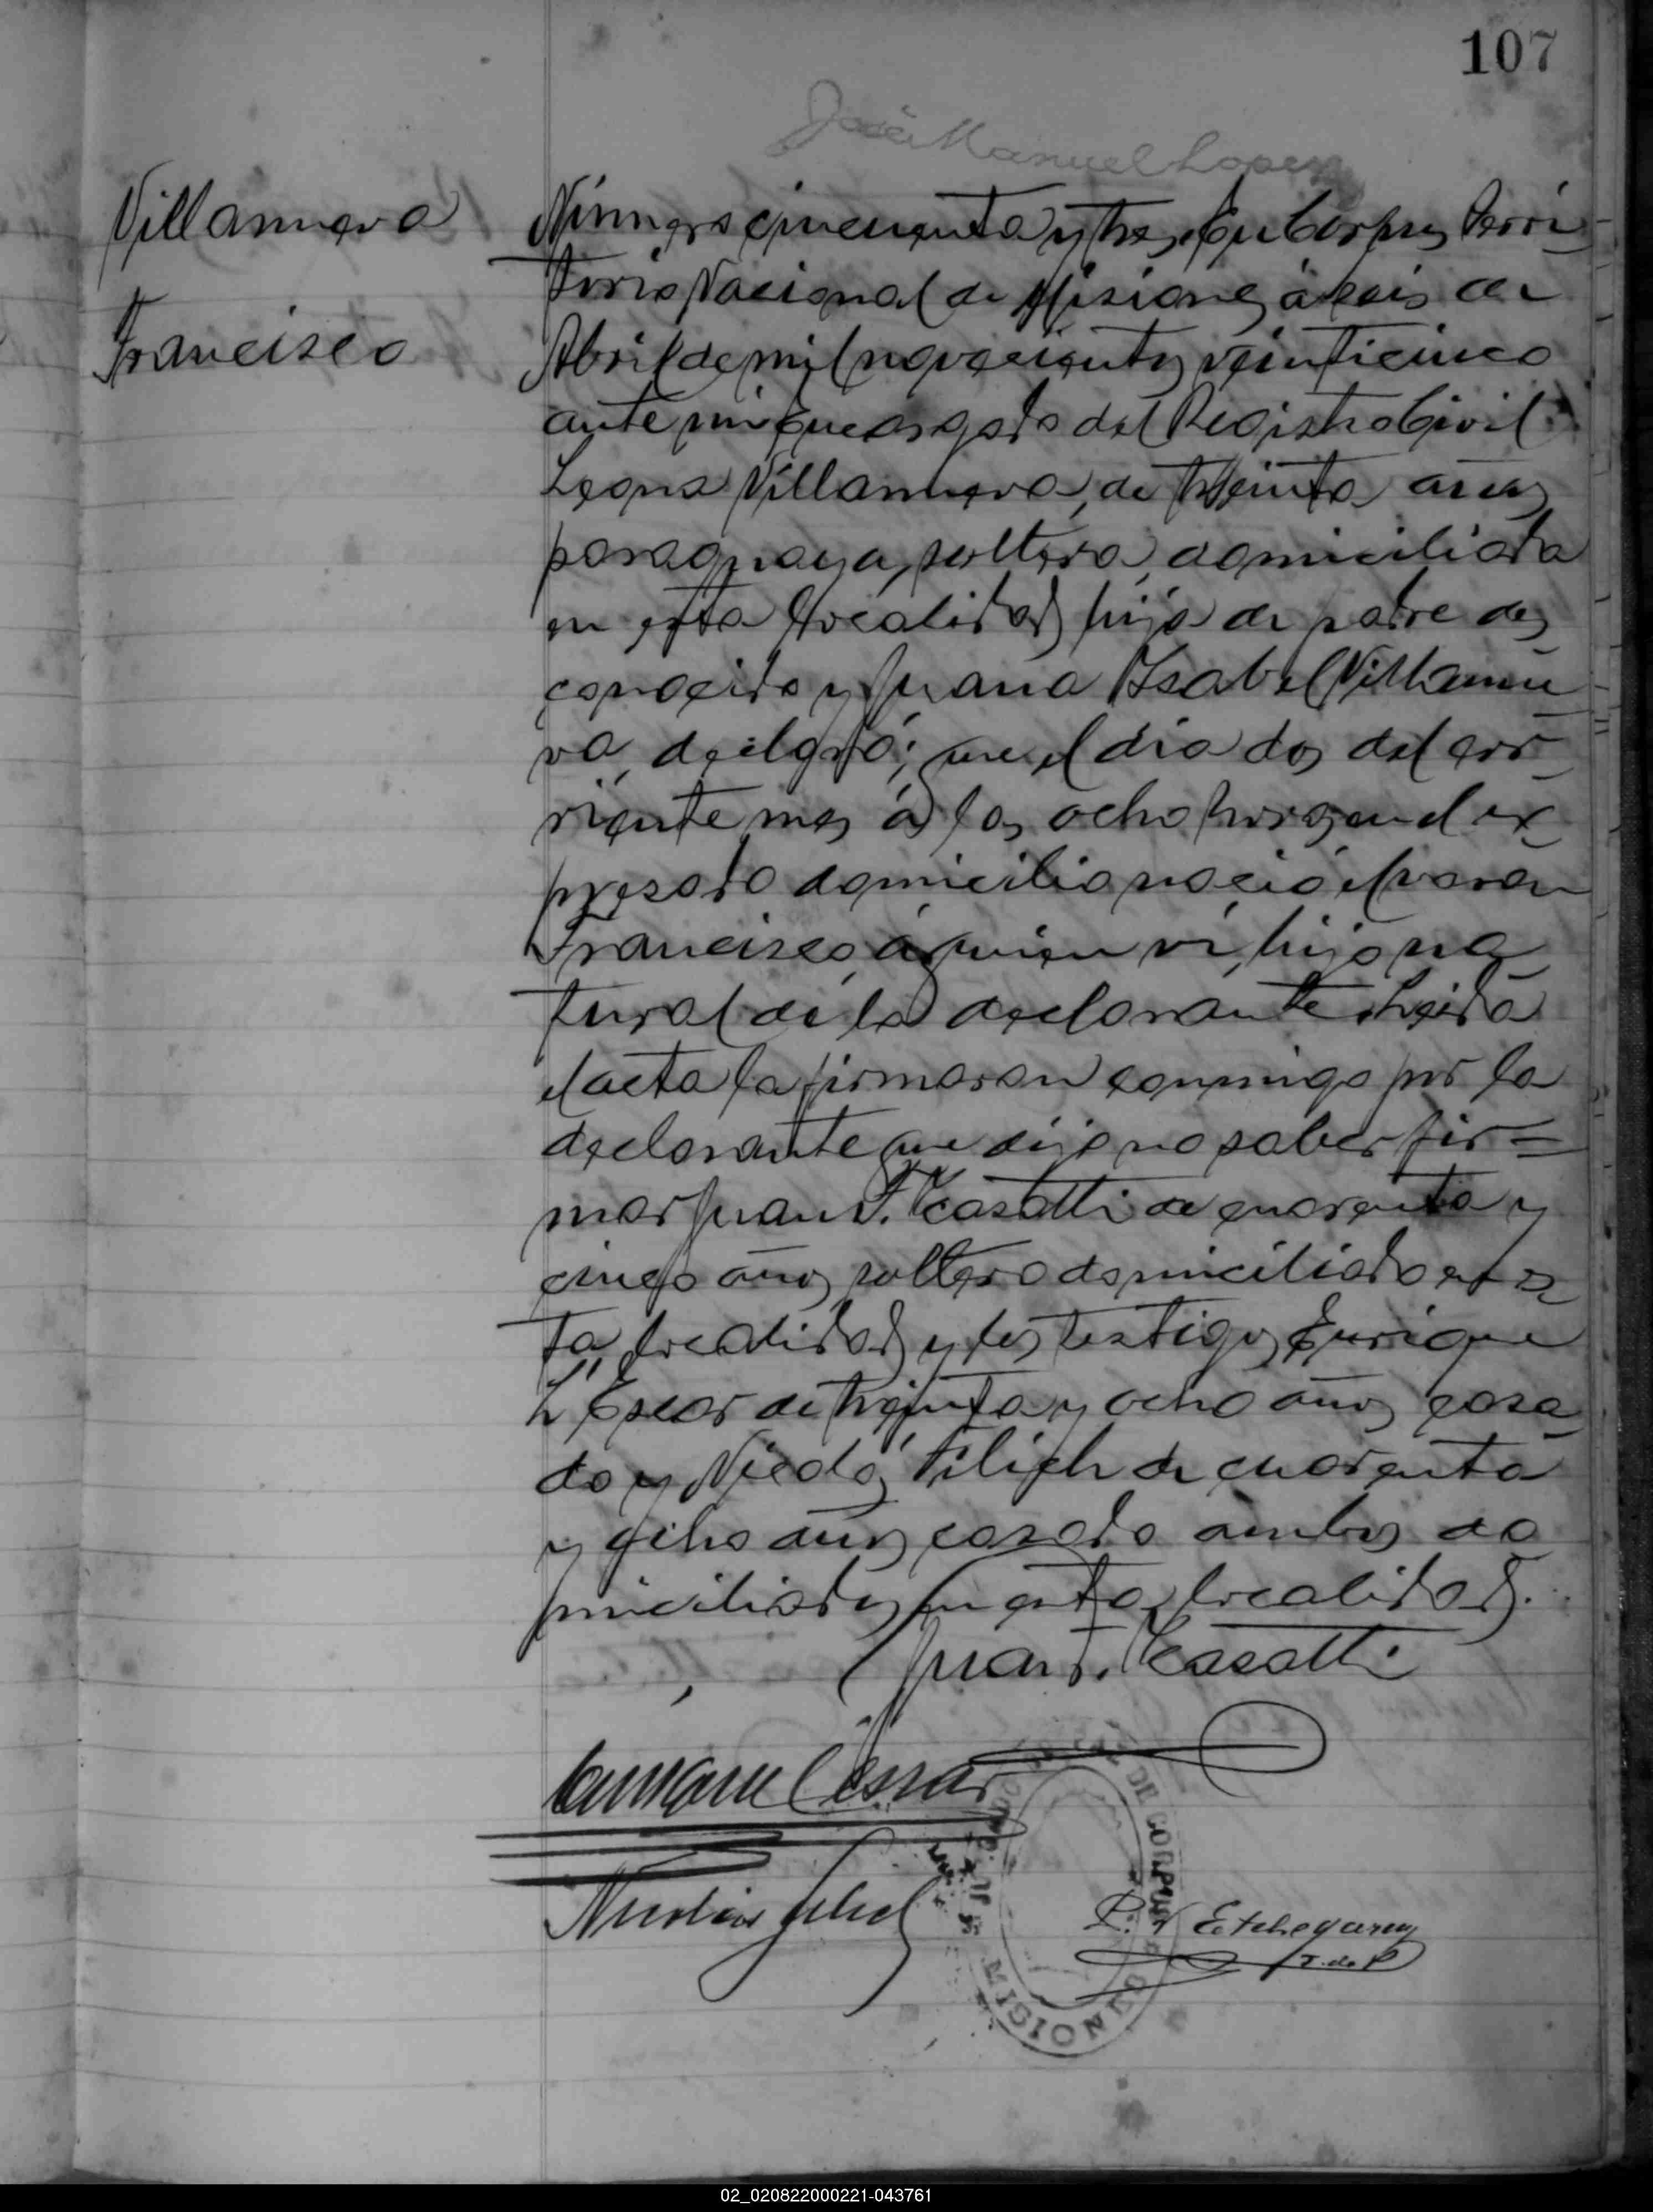 107
José Manuel Lopez
Villanueva
Francisco
Número cincuenta y tres, En Corpus Terri
torio Nacional de Misiones, á seis de
Abril de mil novecientos veinticinco
ante mi Encargado del Registro Civil
Leona Villanueva, de treinta años
paraguaya, soltera, domiciliada
en esta localidad, hija de padre des
conocido y Juana Isabel Villanue
va, declaró: que el dia dos del cor
riente mes á las ocho horas, en el ex
presado domicilio nació el varon
Francisco, á quien vi, hijo na
tural de la declarante. Leida
el acta la firmaron conmigo por la
declarante que dijo no saber fir=
mar Juan Casatti de cuarenta y
cinco años, soltero domiciliado en es
ta localidad y los testigos Enrique
de treinta y ocho años, casa
do y de cuarenta
y ocho años, casado ambos do
miciliados en esta localidad.
Juan Casatti
Nicolas
P. V. Etchegaray
J. de P
DE CORPUS
MISIONES
02_020822000221-043761